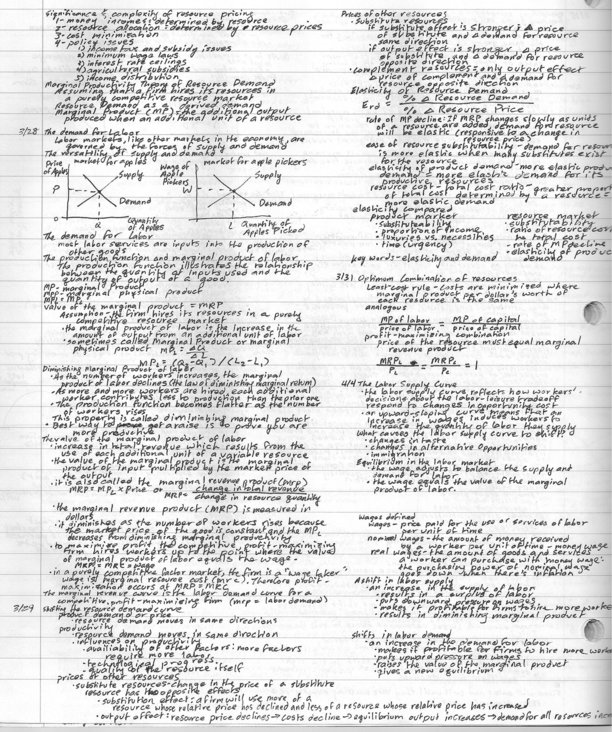 Significance & complexity of resource pricing
1- money incomes: determined by resource
2- resource allocation: determined by resource prices
3- cost minimization
4- policy issues
1) income tax and subsidy issues
2) minimum wage laws
3) interest rate ceilings
4) agricultural subsidies
5) income distribution
Marginal Productivity Theory of Resource Demand
Assuming that a firm hires its resources in
a purely competitive resource market
Resource Demand as a derived demand
Marginal Product (MP) = the additional output
produced when an additional unit of a resource
3/28 The demand for Labor
Labor markets, like other markets in the economy, are
governed by the forces of supply and demand
The versatility of supply and demand
Price of Apples
market for apples
Supply
P
Demand
Q
Quantity of Apples
Wage of Apple Pickers
market for apple pickers
Supply
W
Demand
L
Quantity of Apples Picked
The demand for Labor
most labor services are inputs into the production of
other goods
The production function and marginal product of labor
The production function illustrates the relationship
between the quantity of inputs used and the
quantity of output of a good.
MP - marginal Product
mpp - marginal physical product
MPL = MPL
value of the marginal product = MRP
Assumption - the firm hires its resources in a purely
competitive resource market
• the marginal product of labor is the increase in the
amount of output from an additional unit of labor
• sometimes called Marginal Product or marginal
physical product MPL = ΔQ / ΔL
MPL = (Q2-Q1) / (L2-L1)
Diminishing Marginal Product of labor
• As the number of workers increases, the marginal
product of labor declines (the law of diminishing marginal return)
• As more and more workers are hired, each additional
worker contributes less to production than the prior one
• The production function becomes flatter as the number
of workers rises
This property is called diminishing marginal product
• Best way to get a raise is to prove you are
more productive
The value of the marginal product of labor
• increase in total revenue which results from the
use of each additional unit of a variable resource
• the value of the marginal product is the marginal
product of input multiplied by the market price of
the output
• it is also called the marginal revenue product (mrp)
MRP = MPL x Price or MRP = change in total revenue / change in resource quantity
• the marginal revenue product (MRP) is measured in
dollars
• it diminishes as the number of workers rises because
the market price of the good is constant and the MPL
decreases from diminishing marginal productivity
• to maximize profit, the competitive, profit-maximizing
firm hires workers up to the point where the value
of marginal product of labor equals the wage.
MRPL = MRC = wage
• in a purely competitive factor market, the firm is a "wage taker"
wage is marginal resource cost (mrc). Therefore profit-
maximization occurs at MRP = MRC
The marginal revenue curve is the labor demand curve for a
competitive, profit-maximizing firm (mrp = labor demand)
3/29 shifting the resource demand curve
product demand or price
• resource demand moves in same directions
productivity
• resource demand moves in same direction
• influences on productivity
• availability of other factors: more factors
require more labor
• technological progress
• quality of the resource itself
prices of other resources
• substitute resources - change in the price of a substitute
resource has two opposite effects
• substitution effect: a firm will use more of a
resource whose relative price has declined and less of a resource whose relative price has increased
• output effect: resource price declines → costs decline → equilibrium output increases → demand for all resources inc
Prices of other resources
• substitute resources
if substitution effect is stronger, Δ price
of substitute and Δ demand for resource
same direction
if output effect is stronger, Δ price
of substitute and Δ demand for resource
opposite direction
• complement resources: only output effect
Δ price of complement and Δ demand for
resource opposite direction
Elasticity of Resource Demand
Erd = % Δ Resource Demand / % Δ Resource Price
rate of MP decline: If MRP changes slowly as units
of a resource are added, demand for resource
will be elastic (responsive to a change in
resource price)
ease of resource substitutability - demand for resour
is more elastic when many substitutes exist
for the resource
elasticity of product demand - more elastic produ
demand = more elastic demand for its
productive resources
resource cost - total cost ratio - greater propor
of total cost determined by a resource =
more elastic demand
elasticity compared
product market
• substitutability
• proportion of income
• luxuries vs. necessities
• time (urgency)
resource market
- substitutability
- ratio of resource co
to total cost
- rate of MP decline
- elasticity of produc
demand
key words - elasticity and demand
3/31 Optimum Combination of resources
Least-cost rule - costs are minimized where
marginal product per dollar's worth of
each resource is the same
analogous
MP of labor / price of labor = MP of capital / price of capital
profit-maximizing combination
price of the resource must equal marginal
revenue product
MRPL / PL = MRPC / PC = 1
4/4 The Labor Supply Curve
• the labor supply curve reflects how workers'
decisions about the labor-leisure tradeoff
respond to changes in opportunity cost
• an upward-sloping curve means that an
increase in wages induces workers to
increase the quantity of labor they supply
What causes the labor supply curve to shift?
• changes in taste
• changes in alternative opportunities
• immigration
Equilibrium in the labor market
• the wage adjusts to balance the supply and
demand for labor
• the wage equals the value of the marginal
product of labor.
Wages defined
wages - price paid for the use or services of labor
per unit of time
nominal wages - the amount of money received
by a worker per unit of time - money wage
real wages - the amount of goods and services
a worker can purchase with "money wage"
the purchasing power of nominal wage
goes down when there's inflation
A shift in labor supply
• an increase in the supply of labor
- results in a surplus of labor
- puts downward pressure on wages
- makes it profitable for firms to hire more worke
- results in diminishing marginal product
shifts in labor demand
• an increase in the demand for labor
- makes it profitable for firms to hire more work
- puts upward pressure on wages
- raises the value of the marginal product
- gives a new equilibrium